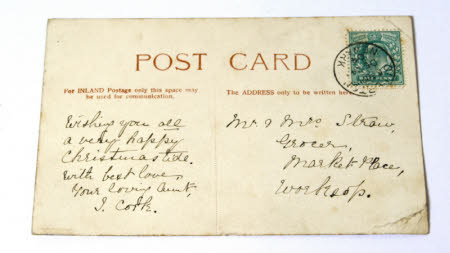 POST CARD
For INLAND Postage only this space may
be used for communication.
The ADDRESS only to be written here
Wishing you all
a very happy
Christmas tide.
With best love
Your loving Aunt,
Mr & Mrs Straw,
Grocer,
Market Place,
Worksop.